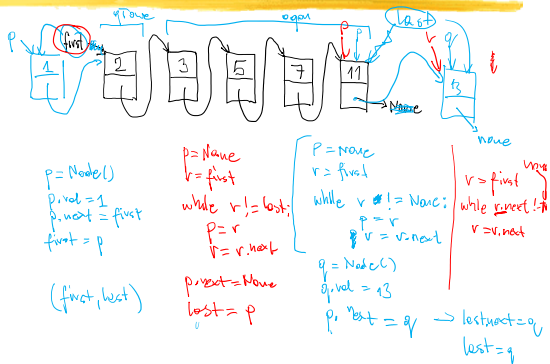 first
last
p
p
p
r
q
1
2
3
5
7
11
13
None
none
p = Node()
p.val = 1
p.next = first
first = p
(first, last)
p = None
r = first
while r != last:
p = r
r = r.next
p.next = None
last = p
p = None
r = first
while r != None:
p = r
r = r.next
q = Node()
q.val = 13
p.next = q → last.next = q
last = q
r = first
while r.next !=
r = r.next